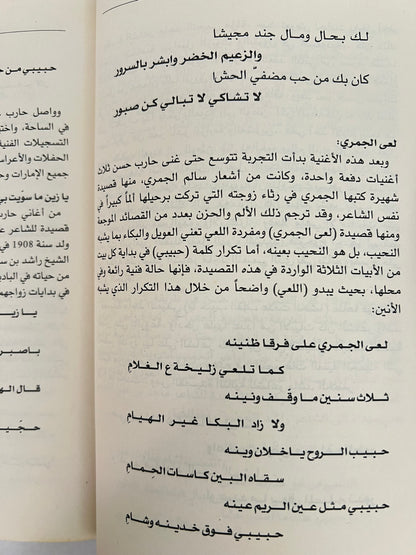 لك بحال ومال جند مجيشا
والزعيم الخضر وابشر بالسرور
كان بك من حب مضفيّ الحشا
لا تشاكي لا تبالي كن صبور
لعى الجمري:
وبعد هذه الأغنية بدأت التجربة تتوسع حتى غنى حارب حسن ثلاث
أغنيات دفعة واحدة، وكانت من أشعار سالم الجمري، منها قصيدة
شهيرة كتبها الجمري في رثاء زوجته التي تركت برحيلها ألماً كبيراً في
نفس الشاعر، وقد ترجم ذلك الألم والحزن بعدد من القصائد الموجعة
ومنها قصيدة (لعى الجمري) ومفردة اللعي تعني العويل والبكاء بما يشبه
النحيب، بل هو النحيب بعينه، أما تكرار كلمة (حبيبي) في بداية كل بيت
من الأبيات الثلاثة الواردة في هذه القصيدة، فإنها حالة فنية رائعة وفي
محلها، بحيث يبدو (اللعي) واضحاً من خلال هذا التكرار الذي يشبه
الأنين:
لعى الجمري على فرقا ظنينه
كما تلعي زليخة ع الغلام
ثلاث سنين ما وقّف ونينه
ولا زاد البكا غير الهيام
حبيب الروح ياخلان وينه
سقاه البين كاسات الحِمام
حبيبي مثل عين الريم عينه
حبيبي فوق خدينه وشام
حبيبي من
وواصل حارب
في الساحة، واختا
التسجيلات الفنية
الحفلات والأعراس
جميع الإمارات و
يا زين ما سوّيت بي
من أغاني حارب
قصيدة للشاعر ع
ولد سنة 1908 في
الشيخ راشد بن س
من حياته في الباد
في بدايات زواجهم
يا زيـ
ياصبر
قال الهـ
حجّيـ